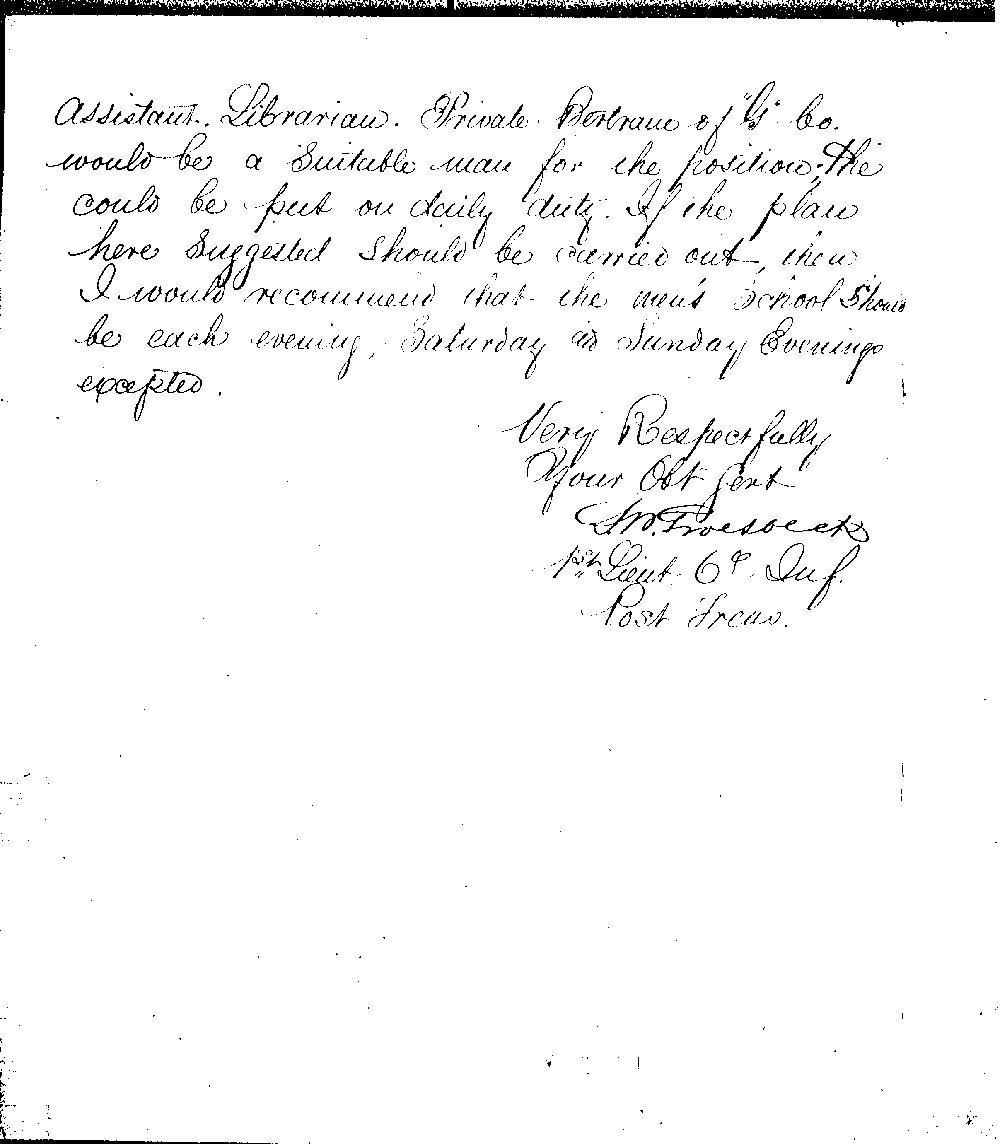 Assistant Librarian. Private Bertram of "G" Co.
would be a suitable man for the position; he
could be put on daily duty. If the plan
here suggested should be carried out, then
I would recommend that the men's School should
be each evening, Saturday and Sunday Evenings
excepted.
Very Respectfully
Your Obt Servt
1st Lieut 6th Inf.
Post Treas.